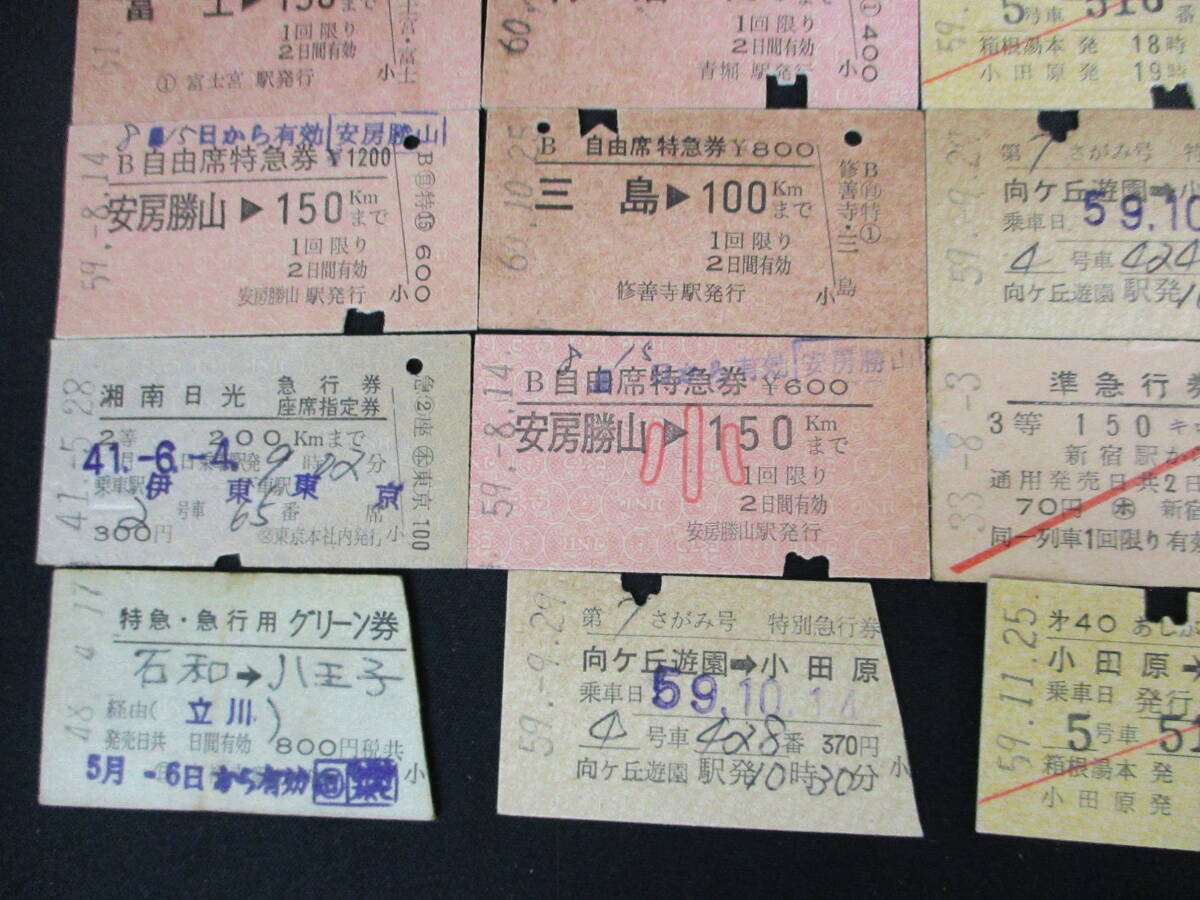 富士▶150
まで
1回限り
2日間有効
① 富士宮 駅発行
小
士宮・富士
まで
1回限り
2日間有効
青堀 駅発行
小
①400
5号車 516 番
箱根湯本 発 18時
小田原 発 19時
8 15日から有効 安房勝山
B自由席特急券 ¥1200
安房勝山▶150Kmまで
1回限り
2日間有効
安房勝山 駅発行 小
59.-8.14.
600
B 自由席特急券 ¥800
三島▶100Kmまで
1回限り
2日間有効
修善寺駅発行 小
60.10.25
修善寺・三島
第7さがみ号
向ケ丘遊園➡小
乗車日 59.10
4号車424
向ケ丘遊園 駅発
59.-9.2
湘南日光 急行券
座席指定券
2等 200Kmまで
41.-6.-4.
9時22分
乗車駅 伊東 東京
2号車 65番 席
300円 東京本社内発行 小
41.-5.28
東京 100
8 15日から有効 安房勝山
B自由席特急券 ¥600
安房勝山▶150Kmまで
小
1回限り
2日間有効
安房勝山駅発行
59.-8.14.
準急行券
3等 150キ
新宿駅か
通用発売日共2日
70円 新宿
同一列車1回限り有効
33.-8.-3
特急・急行用グリーン券
石和→八王子
経由(立川)
発売日共 日間有効 800円税共
5月-6日から有効
小
第7さがみ号 特別急行券
向ケ丘遊園➡小田原
乗車日 59.10.14
4号車 428番 370円
向ケ丘遊園 駅発10時30分 小
59.-9.29
小田原
乗車日 発行
5号車 51
箱根湯本 発
小田原 発
59.11.25